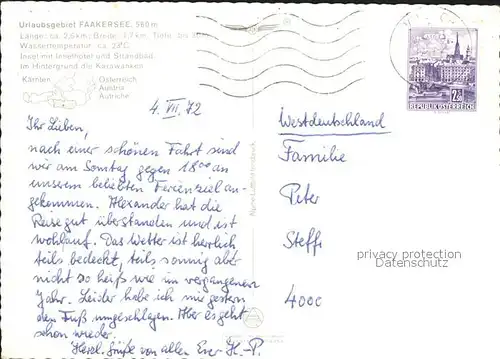 Urlaubsgebiet FAAKERSEE, 560 m
Länge: ca. 2,6 km; Breite: 1,7 km, Tiefe: bis 30
Wassertemperatur ca. 28°C
Insel mit Inselhotel und Strandbad
Im Hintergrund die Karawanken
Kärnten
Österreich
Austria
Autriche
4. VII. 72
Ihr Lieben,
nach einer schönen Fahrt sind
wir am Sonntag gegen 18.00 an
unserem beliebten Ferienziel an-
gekommen. Alexander hat die
Reise gut überstanden und ist
wohlauf. Das Wetter ist herrlich
teils bedeckt, teils sonnig aber
nicht so heiß wie im vergangenen
Jahr. Leider habe ich mir gestern
den Fuß umgeschlagen. Aber es geht
schon wieder.
Herzl. Grüße von allen Euer H.-P.
2.50
REPUBLIK ÖSTERREICH
Westdeutschland
Familie
Peter
Steffe
4000
privacy protection
Datenschutz